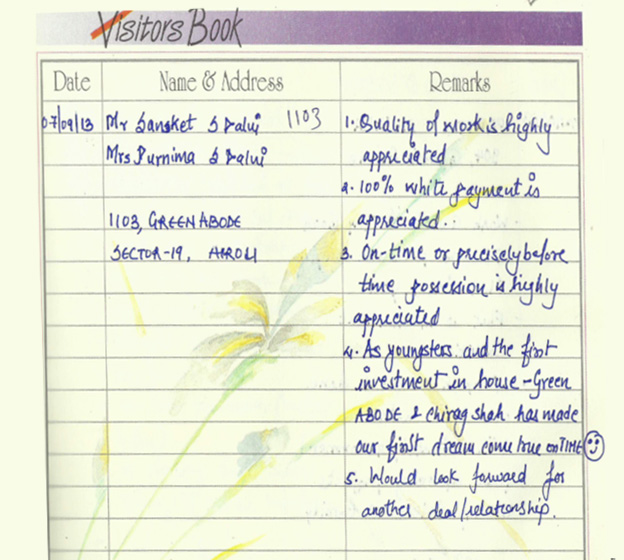 Visitors Book
Date Name & Address Remarks
07/09/13 Mr Sansket S Palui 1103 1. Quality of work is highly
Mrs Purnima S Palui appreciated
2. 100% white payment is
1103, GREEN ABODE appreciated.
SECTOR-19, AIROLI 3. On-time or precisely before
time possession is highly
appreciated
4. As youngsters and the first
investment in house - Green
ABODE & Chirag Shah has made
our first dream come true on TIME
5. Would look forward for
another deal/relationship.